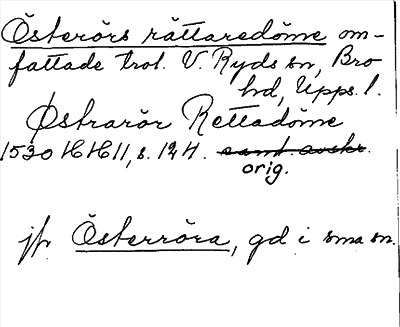 Österörs rättaredöme om-
fattade trol. V. Ryds sn, Bro
hd, Upps. l.
Østrarör Rettadöme
1530 HH 11, s. 124. samt. avskr.
orig.
jfr Österröra, gd i sma sn.